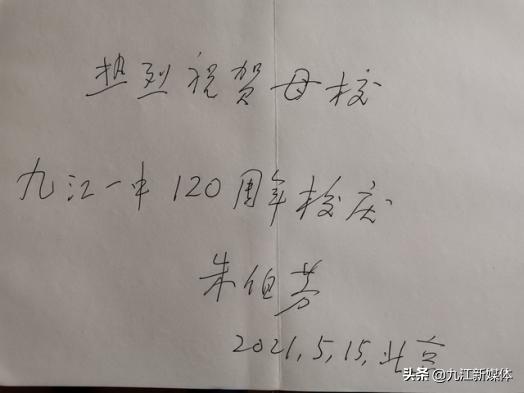 热烈祝贺母校
九江一中120周年校庆
朱伯芳
2021,5,15,北京
头条 @九江新媒体